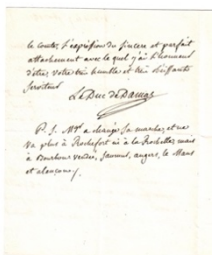 le comte, l'expression du sincere et parfait
attachement avec le quel j'ai l'honneur
d'être, votre très humble et très obéissant
serviteur
Le Duc de Damas
P. S. Mgr a changé sa marche, et ne
va plus à Rochefort ni à la Rochelle, mais
à Bourbon vendée, Saumur, angers, le Mans
et alençon